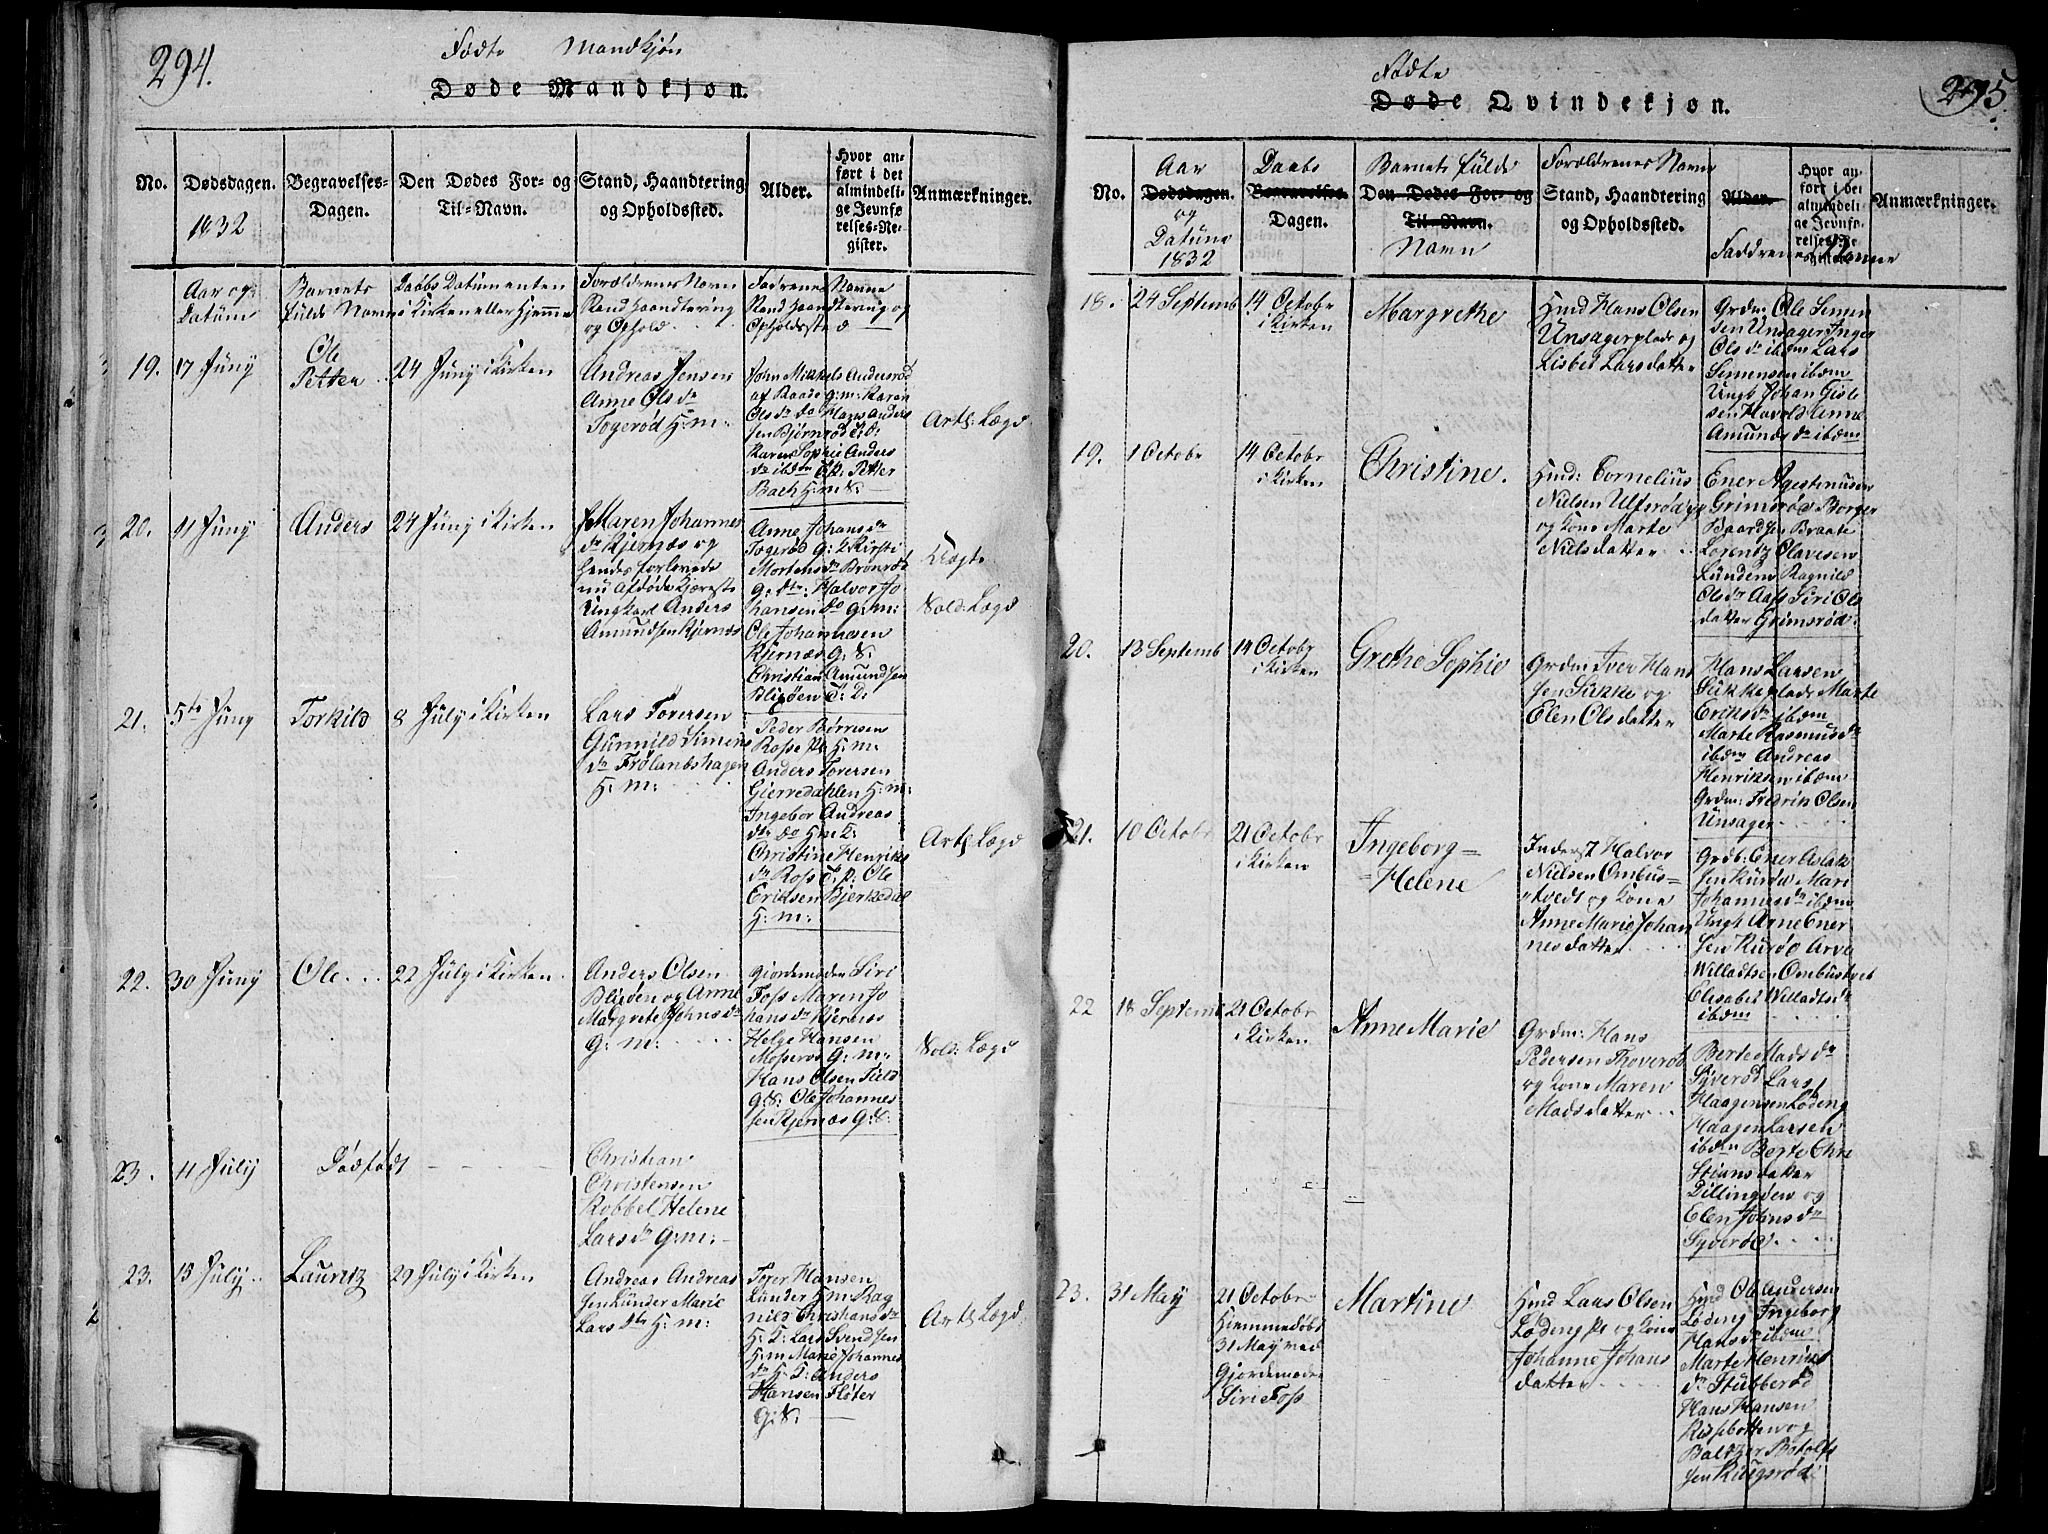 294.
Fødte Mandkjøn
Døde Mandkjøn.
No.
Dødsdagen.
1832
Begravelses-
Dagen.
Den Dødes For- og
Til-Navn.
Stand, Haandtering
og Opholdssted.
Alder.
Hvor an-
ført i det
almindeli-
ge Jevnfø-
relses-Re-
gister.
Anmærkninger.
Aar og
Datum
Barnets
fulde Navn
Daabs Datum enten
i Kirken eller Hjemme
Forældrenes Navn
Stand Haandtering
og Ophold
Fadrenes Navne
Stand Haandtering og
Opholdssted
19.
17 Juny
Ole
Petter
24 Juny i Kirken
Andreas Jensen
Anne Ols dr
Togerød H: m:
John Mikkels Andersrød
af Raade g: m: Karen
Ols dr do Hans Anders
sen Bjørnrød
Karen Sophie Anders
dr ibdm Petter
Bach H: m
Arts: Lægd
20.
11 Juny
Anders
24 Juny i Kirken
Maren Johannes
dr Kjernæs og
hendes forlovede
nu afdøde Kjæreste
Ungkarl Anders
Amundsen Kjernæs
Anne Johans dr
Togerød G: K Kirsti
Mortens dr Brönrød
G: dtr: Halvor Jo
hansen do g: m:
Ole Johannesen
Kjernæs G: S:
Christian Amundsen
Blixøen T: D:
Uægte
Sold: Lægd
21.
5te Juny
Torkild
8 July i Kirken
Lars Torersen
Gunnild Simens
dr Frølandshagen
H: m:
Peder Börresen
Rosse Pl H: m:
Anders Torersen
Gierredahlen H: m:
Ingebor Andreas
dtr do H: m: T:
Christine Henriks
dr Ross T: p: Ole
Eriksen Bjerkedal
H: m:
Arts Lægd
22.
30 Juny
Ole
22 July i Kirken
Anders Olsen
Blixöen og Anne
Margrete Johns dr
G: m:
Gjordemoder Siri
Foss Maren Jo
hans dr Kjernæs
Helge Hansen
Moseros G: m:
Hans Olsen Field
G: S: Ole Johannes
sen Kjernæs G: S:
Sold: Lægd
23.
11 July
Dødfødt
Christian
Christensen
Kobbel Helene
Lars dr G: m:
23.
15 July
Lauritz
29 July i Kirken
Andreas Andreas
sen Lunder Marie
Lars dtr H: m:
Toger Hansen
Lunder H: m Rag
nild Christians dr
H: T: Lars Svendsen
H: m Marie Johannes
dr H: T: Anders
Hansen Fløter
G: S:
Arts Lægd
295.
Fødte
Døde Qvindekjøn.
No.
Aar
Dødsdagen.
og
Datum
1832
Daabs
Begravelses-
Dagen.
Barnets fulde
Den Dødes For- og
Til-Navn.
Navn
Forældrenes Navn
Stand, Haandtering
og Opholdssted.
Alder.
Hvor an-
ført i det
almindeli-
ge Jevnfø-
relses-Re-
gister.
Faddrenes Navne
Anmærkninger.
18.
24 Septemb
14 Octobr
i Kirken
Margrethe
Huusmd Hans Olsen
Unsagerplads og
Lisbet Larsdatter
Grdm: Ole Simen
sen Unsager Inger
Ols dr ibdm Lars
Simensen ibdm
Ungk Johan Gisle
sen Havold Anne
Amunds dr ibdm
19.
1 Octobr
14 Octobr
i Kirken
Christine.
Hmd: Cornelius
Nielsen Ulfsrød
og Kone Marte
Nielsdatter
Ener Agestenusen
Grimsrød Borger
Baardsen Braate
Lorentz Olavesen
Lunden Ragnild
Ols dr Aas Siri Ols
datter Grimsrød.
20.
13 Septemb
14 Octobr
i Kirken
Grethe Sophie
Grdm: Iver Hans
sen Sikke og
Elen Olsdatter
Hans Larsen
Sikkeplads Marte
Eriks dr ibdm
Marte Rasmus dr
ibdm Andreas
Henriksen ibdm
Grdm: Fredrik Olsen
Unsager
21.
10 Octobr
21 Octobr
i Kirken
Ingeborg=
=Helene
Inderst Halvor
Nielsen Ombus=
tvedt og Kone
Anne Marie Johan
nesdatter
Grdb: Ener Aslak
sen Kurød Mari
Johannes dr ibdm
Ungk Arne Ener
sen Kurød Arve
Willadtsen Ombustvet
Elisabet Willadts dr
ibdm
22
18 Septemb
21 Octobr
i Kirken
Anne Marie
Grdm: Hans
Pedersen Thoverød
og Kone Maren
Madsdatter
Berte Mads dr
Syverød Lars
Haagensen Løding
Haagen Larsen
ibdm Berte Chri
stiansdatter
Dillingöen og
Elen Johns dr
Syverød
23.
31 May
21 Octobr
Hiemmedøbt
31 May ved
Gjordemoder
Siri Foss
Martine
Hmd Lars Olsen
Løding Pl og Kone
Johanne Johans
datter
Hmd Ole Andersen
Løding Ingeborg
Hans dr ibdm
Marte Henriks
dr Stubberød
Hans Hansen
Risebotten og
Baltzer Botolf
sen Ringsrød